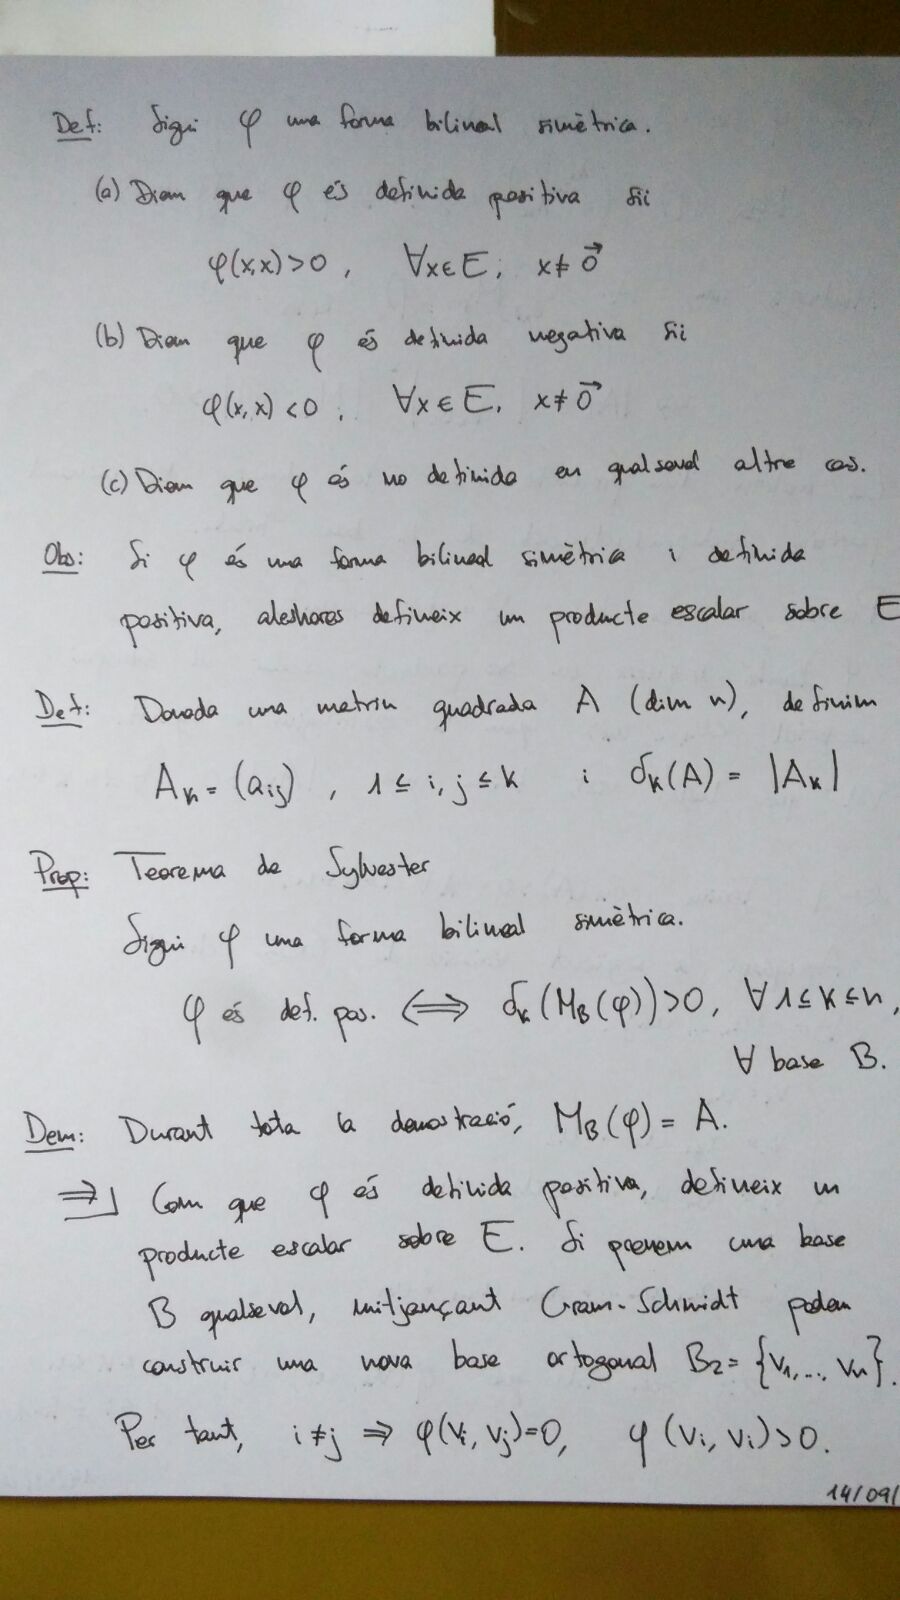 Def: Sigui φ una forma bilineal simètrica.
(a) Diem que φ és definida positiva sii
φ(x,x)>0, ∀x∈E, x≠0⃗
(b) Diem que φ és definida negativa sii
φ(x,x)<0, ∀x∈E, x≠0⃗
(c) Diem que φ és no definida en qualsevol altre cas.
Obs: Si φ és una forma bilineal simètrica i definida
positiva, aleshores defineix un producte escalar sobre E
Def: Donada una matriu quadrada A (dim n), definim
A_k = (a_ij), 1 ≤ i, j ≤ k i δ_k(A) = |A_k|
Prop: Teorema de Sylvester
Sigui φ una forma bilineal simètrica.
φ és def. pos. ⟺ δ_k(M_B(φ))>0, ∀ 1≤k≤n,
∀ base B.
Dem: Durant tota la demostració, M_B(φ) = A.
⇒⌋ Com que φ és definida positiva, defineix un
producte escalar sobre E. Si prenem una base
B qualsevol, mitjançant Gram-Schmidt podem
construir una nova base ortogonal B₂ = {v₁,..., vₙ}.
Per tant, i≠j ⇒ φ(vᵢ, vⱼ)=0, φ(vᵢ, vᵢ)>0.
14/09/